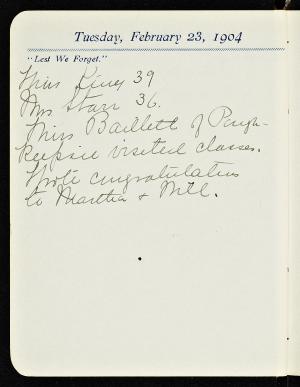 Tuesday, February 23, 1904
"Lest We Forget."
Miss King 39
Mrs Starr 36.
Miss Bartlett of Pough-
keepsie visited classes.
Wrote congratulations
to Martha & Will.